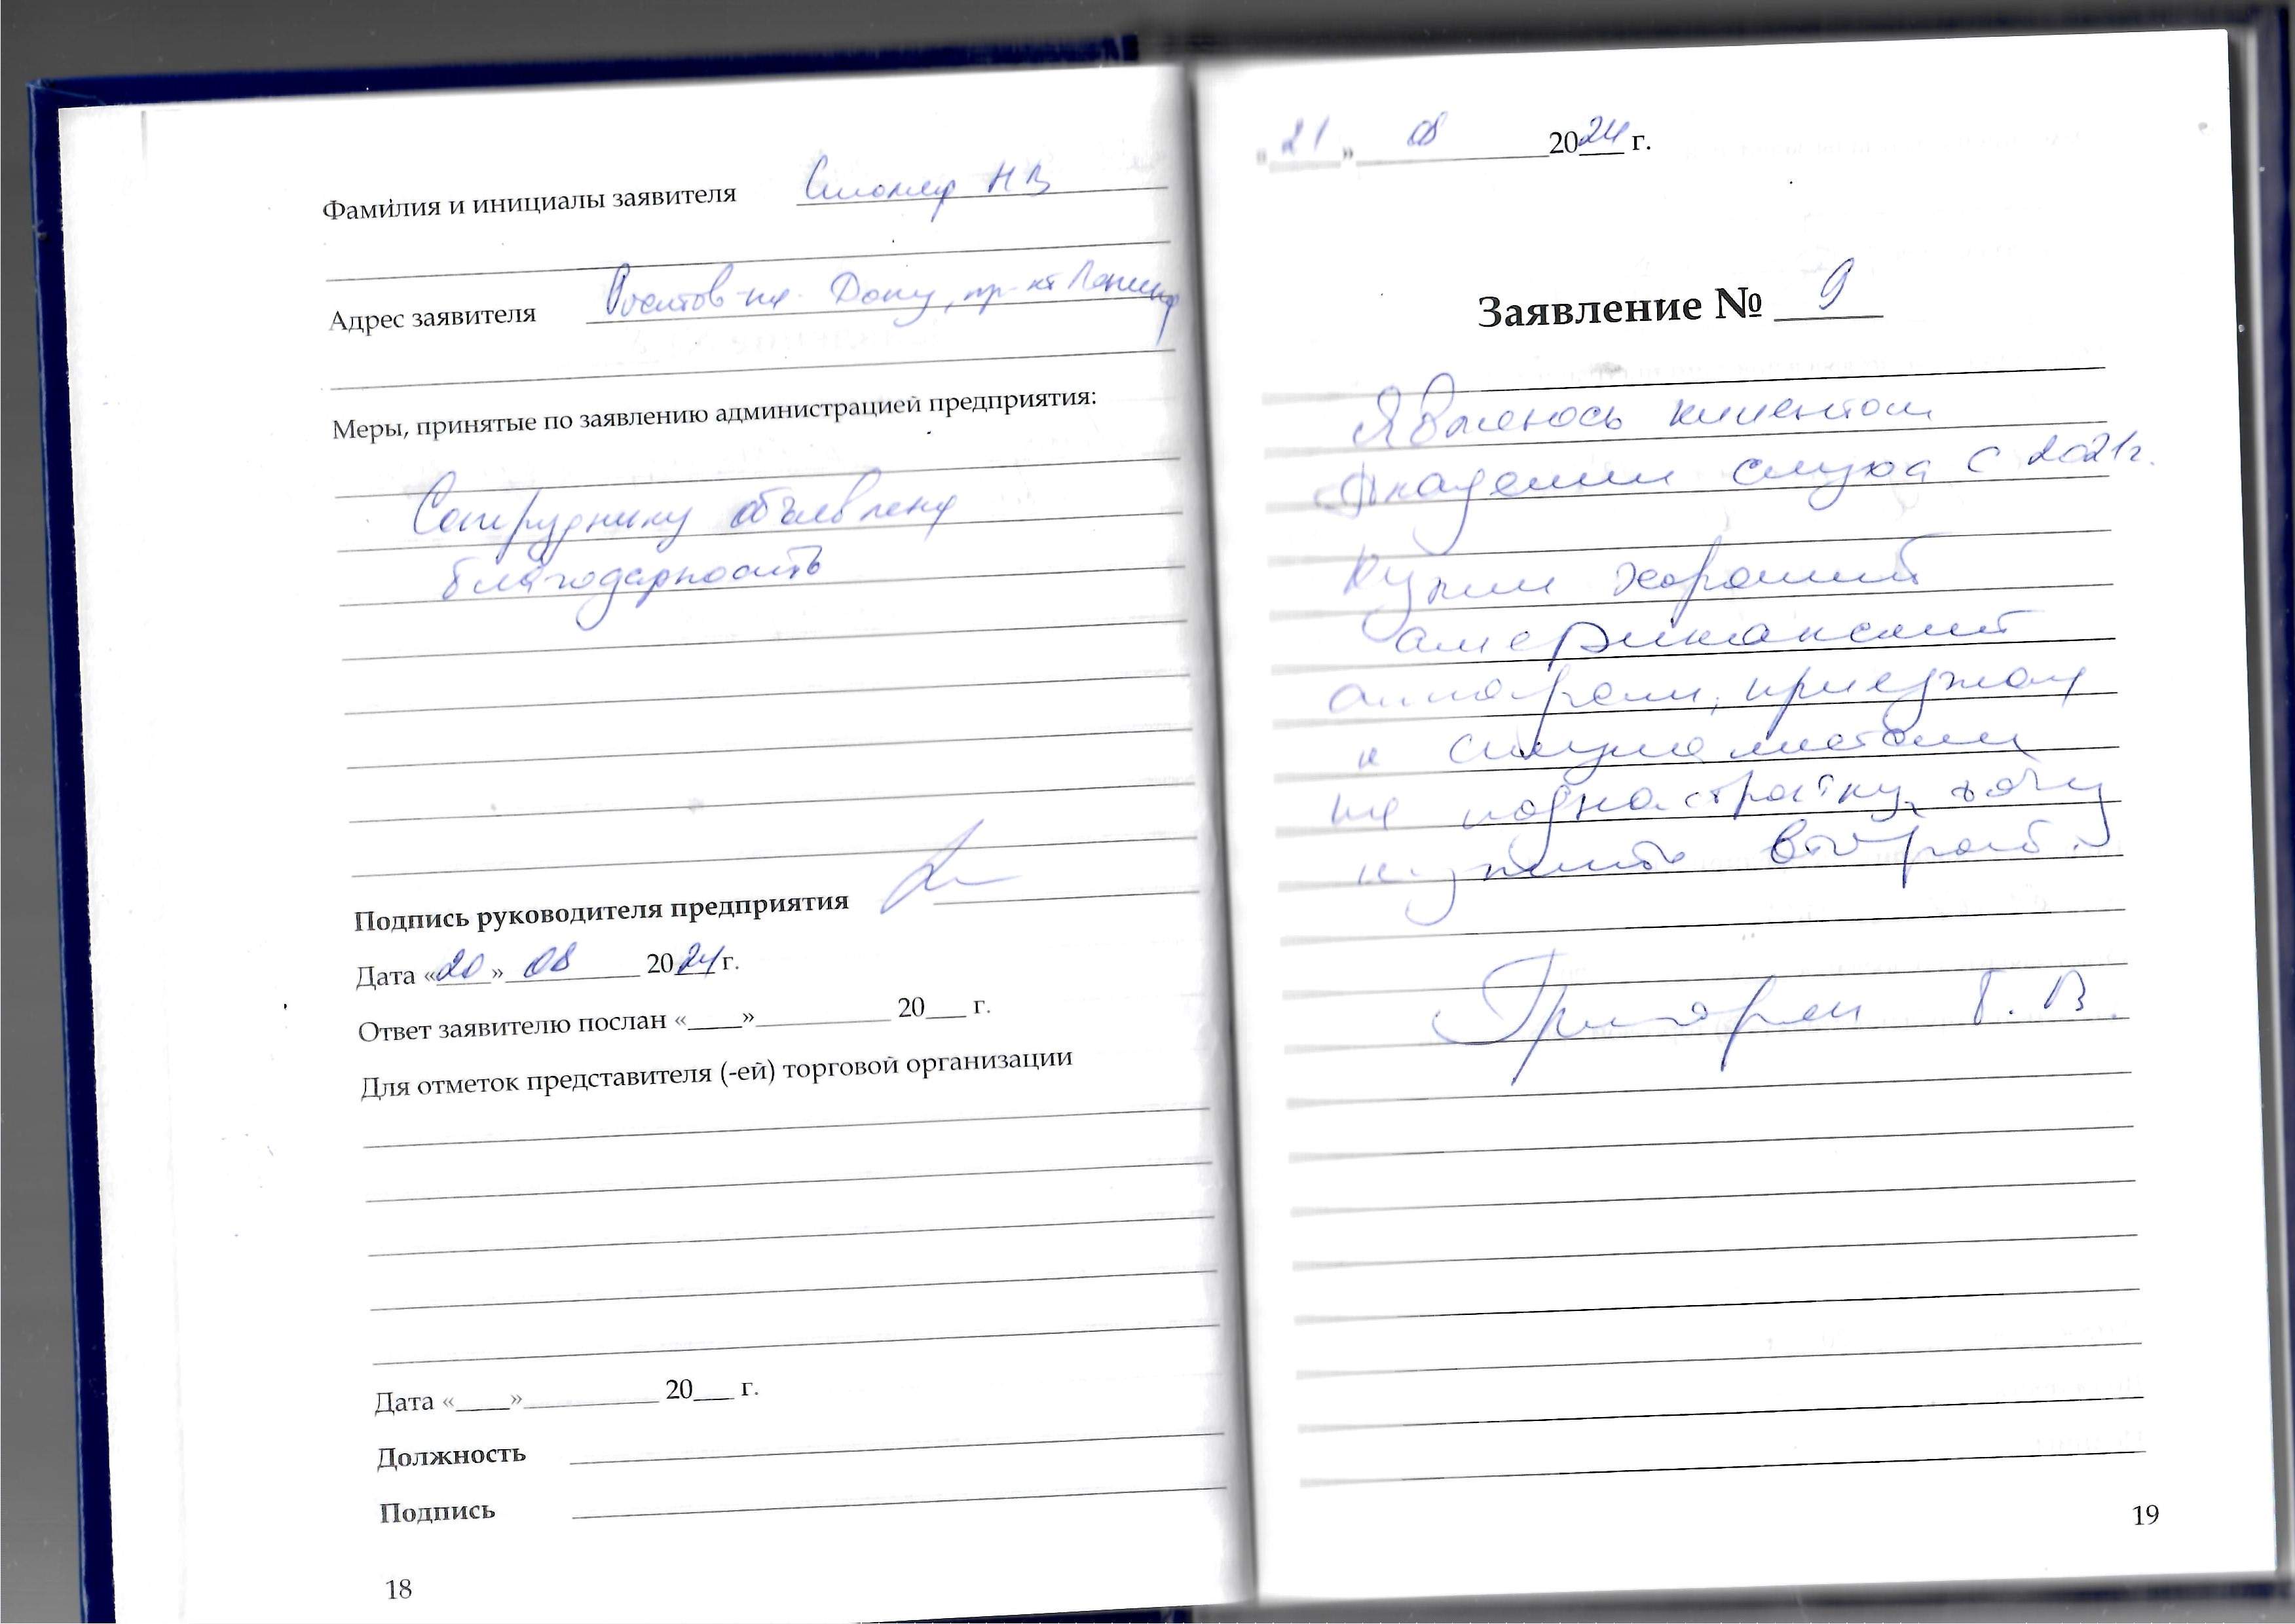 Фамилия и инициалы заявителя Н В
Адрес заявителя Ростов-на-Дону, пр-кт Ленина
Меры, принятые по заявлению администрацией предприятия:
Сотруднику объявлена
благодарность
Подпись руководителя предприятия
Дата «20» 08 2024 г.
Ответ заявителю послан «____»__________ 20___ г.
Для отметок представителя (-ей) торговой организации
Дата «____»__________ 20___ г.
Должность
Подпись
18
«21» 08 2024 г.
Заявление № 9
Являюсь клиентом
Академии слуха с 2021г.
Купил хороший
американский
аппарат, приезжаю
к специалистам
на поднастройку, хочу
купить второй.
Григорян Г. В.
19